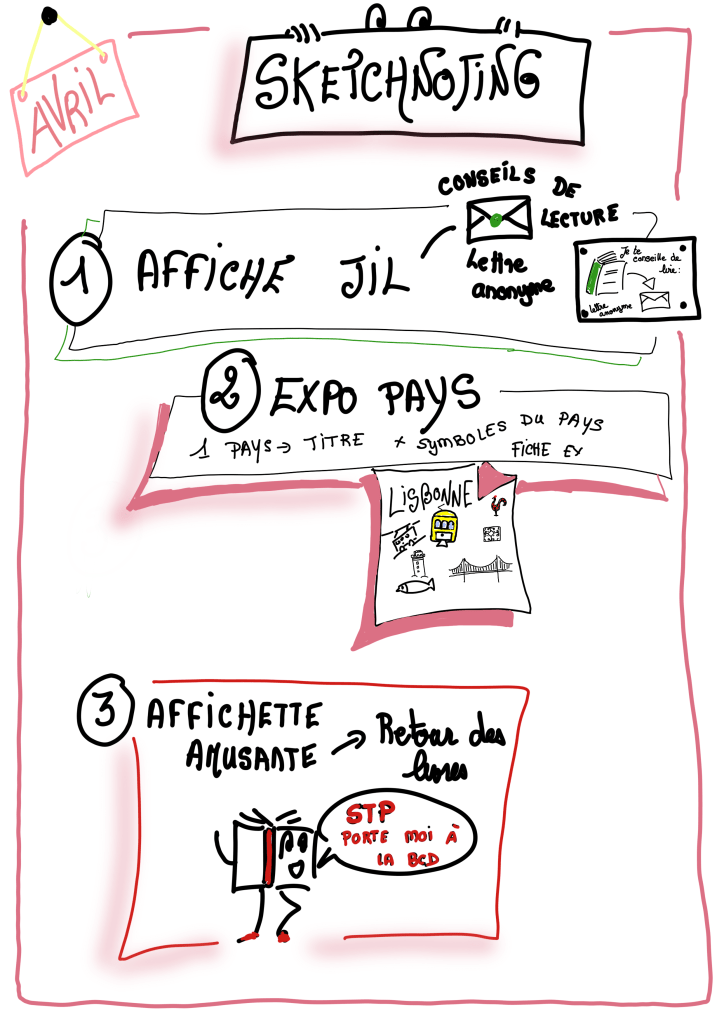 AVRIL
SKETCHNOTING
CONSEILS DE
LECTURE
1 AFFICHE JIL
Lettre
anonyme
Je te
conseille de
lire :
lettre
anonyme
2 EXPO PAYS
1 PAYS → TITRE × SYMBOLES DU PAYS
FICHE EX
LISBONNE
3 AFFICHETTE
AMUSANTE → Retour des
livres
STP
PORTE MOI À
LA BCD